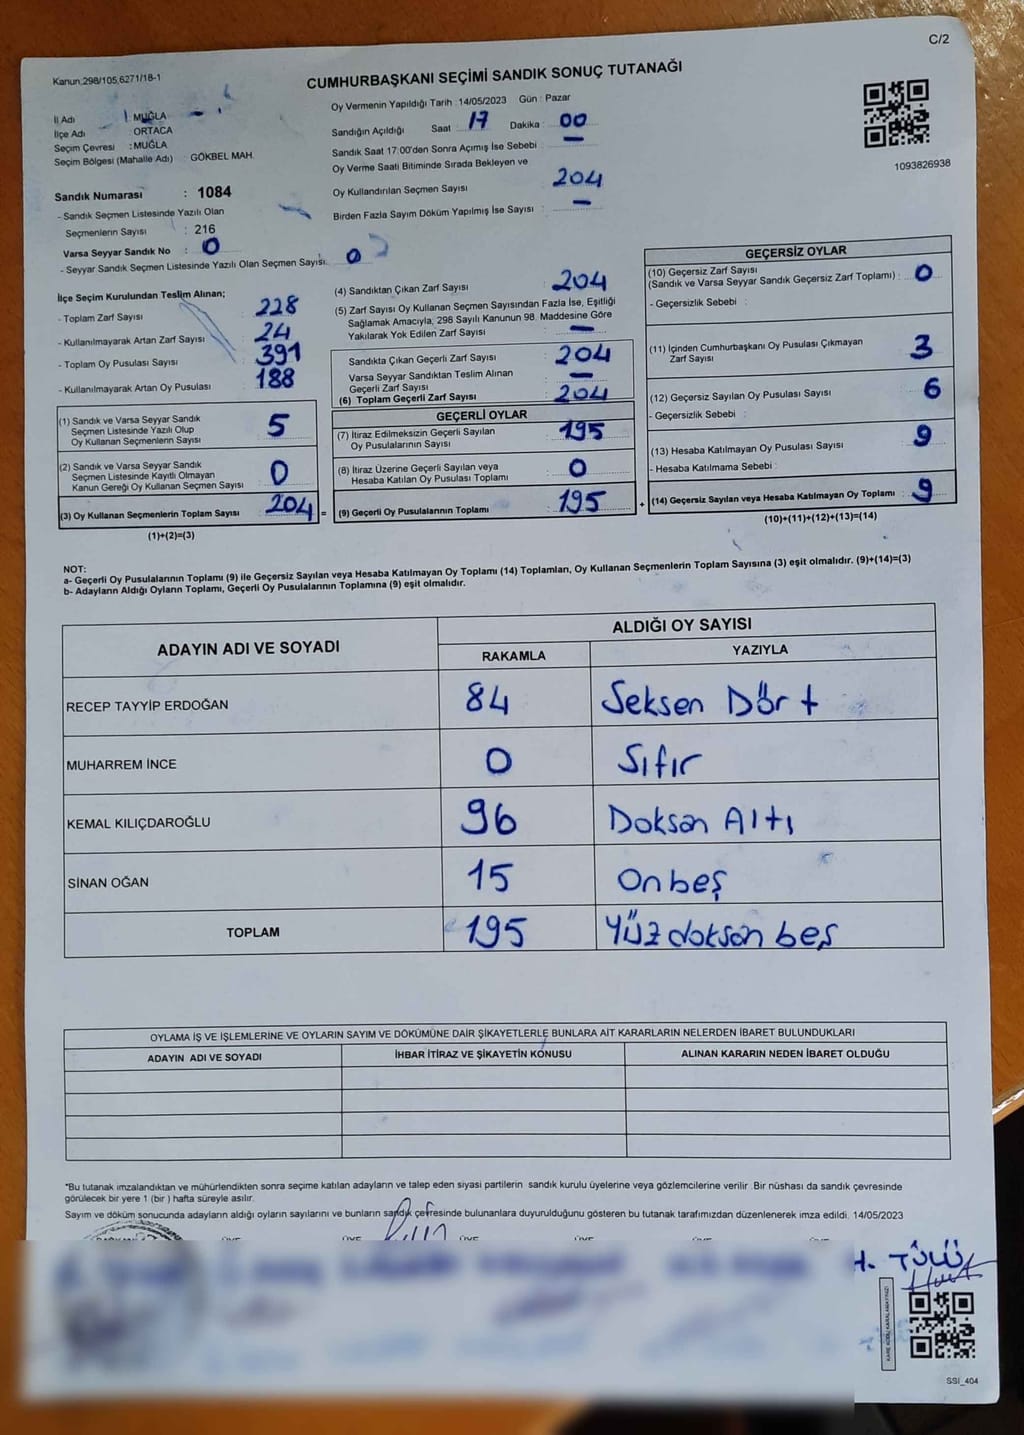 C/2
Kanun:298/105,6271/18-1
CUMHURBAŞKANI SEÇİMİ SANDIK SONUÇ TUTANAĞI
İl Adı : MUĞLA
İlçe Adı : ORTACA
Seçim Çevresi : MUĞLA
Seçim Bölgesi (Mahalle Adı) : GÖKBEL MAH.
Sandık Numarası : 1084
- Sandık Seçmen Listesinde Yazılı Olan
Seçmenlerin Sayısı : 216
Varsa Seyyar Sandık No : 0
- Seyyar Sandık Seçmen Listesinde Yazılı Olan Seçmen Sayısı: 0
Oy Vermenin Yapıldığı Tarih : 14/05/2023 Gün : Pazar
Sandığın Açıldığı Saat : 17 Dakika : 00
Sandık Saat 17:00'den Sonra Açımış İse Sebebi : —
Oy Verme Saati Bitiminde Sırada Bekleyen ve
Oy Kullandırılan Seçmen Sayısı : 204
Birden Fazla Sayım Döküm Yapılmış İse Sayısı : —
1093826938
İlçe Seçim Kurulundan Teslim Alınan;
- Toplam Zarf Sayısı : 228
- Kullanılmayarak Artan Zarf Sayısı : 24
- Toplam Oy Pusulası Sayısı : 391
- Kullanılmayarak Artan Oy Pusulası : 188
(1) Sandık ve Varsa Seyyar Sandık
Seçmen Listesinde Yazılı Olup
Oy Kullanan Seçmenlerin Sayısı : 5
(2) Sandık ve Varsa Seyyar Sandık
Seçmen Listesinde Kayıtlı Olmayan
Kanun Gereği Oy Kullanan Seçmen Sayısı : 0
(3) Oy Kullanan Seçmenlerin Toplam Sayısı : 204 =
(1)+(2)=(3)
(4) Sandıktan Çıkan Zarf Sayısı : 204
(5) Zarf Sayısı Oy Kullanan Seçmen Sayısından Fazla İse, Eşitliği
Sağlamak Amacıyla, 298 Sayılı Kanunun 98. Maddesine Göre
Yakılarak Yok Edilen Zarf Sayısı : —
Sandıkta Çıkan Geçerli Zarf Sayısı : 204
Varsa Seyyar Sandıktan Teslim Alınan
Geçerli Zarf Sayısı : —
(6) Toplam Geçerli Zarf Sayısı : 204
GEÇERLİ OYLAR
(7) İtiraz Edilmeksizin Geçerli Sayılan
Oy Pusulalarının Sayısı : 195
(8) İtiraz Üzerine Geçerli Sayılan veya
Hesaba Katılan Oy Pusulası Toplamı : 0
(9) Geçerli Oy Pusulalarının Toplamı : 195 +
GEÇERSİZ OYLAR
(10) Geçersiz Zarf Sayısı
(Sandık ve Varsa Seyyar Sandık Geçersiz Zarf Toplamı) : 0
- Geçersizlik Sebebi :
(11) İçinden Cumhurbaşkanı Oy Pusulası Çıkmayan
Zarf Sayısı : 3
(12) Geçersiz Sayılan Oy Pusulası Sayısı : 6
- Geçersizlik Sebebi :
(13) Hesaba Katılmayan Oy Pusulası Sayısı : 9
- Hesaba Katılmama Sebebi :
(14) Geçersiz Sayılan veya Hesaba Katılmayan Oy Toplamı : 9
(10)+(11)+(12)+(13)=(14)
NOT:
a- Geçerli Oy Pusulalarının Toplamı (9) ile Geçersiz Sayılan veya Hesaba Katılmayan Oy Toplamı (14) Toplamları, Oy Kullanan Seçmenlerin Toplam Sayısına (3) eşit olmalıdır. (9)+(14)=(3)
b- Adayların Aldığı Oyların Toplamı, Geçerli Oy Pusulalarının Toplamına (9) eşit olmalıdır.
ADAYIN ADI VE SOYADI ALDIĞI OY SAYISI
RAKAMLA YAZIYLA
RECEP TAYYİP ERDOĞAN 84 Seksen Dört
MUHARREM İNCE 0 Sıfır
KEMAL KILIÇDAROĞLU 96 Doksan Altı
SİNAN OĞAN 15 Onbeş
TOPLAM 195 Yüz doksan beş
OYLAMA İŞ VE İŞLEMLERİNE VE OYLARIN SAYIM VE DÖKÜMÜNE DAİR ŞİKAYETLERLE BUNLARA AİT KARARLARIN NELERDEN İBARET BULUNDUKLARI
ADAYIN ADI VE SOYADI İHBAR İTİRAZ VE ŞİKAYETİN KONUSU ALINAN KARARIN NEDEN İBARET OLDUĞU
*Bu tutanak imzalandıktan ve mühürlendikten sonra seçime katılan adayların ve talep eden siyasi partilerin sandık kurulu üyelerine veya gözlemcilerine verilir .Bir nüshası da sandık çevresinde
görülecek bir yere 1 (bir ) hafta süreyle asılır.
Sayım ve döküm sonucunda adayların aldığı oyların sayılarını ve bunların sandık çefresinde bulunanlara duyurulduğunu gösteren bu tutanak tarafımızdan düzenlenerek imza edildi. 14/05/2023
H. TÜLÜ
KARE KODU KARALAMAYINIZ!
SSI_404